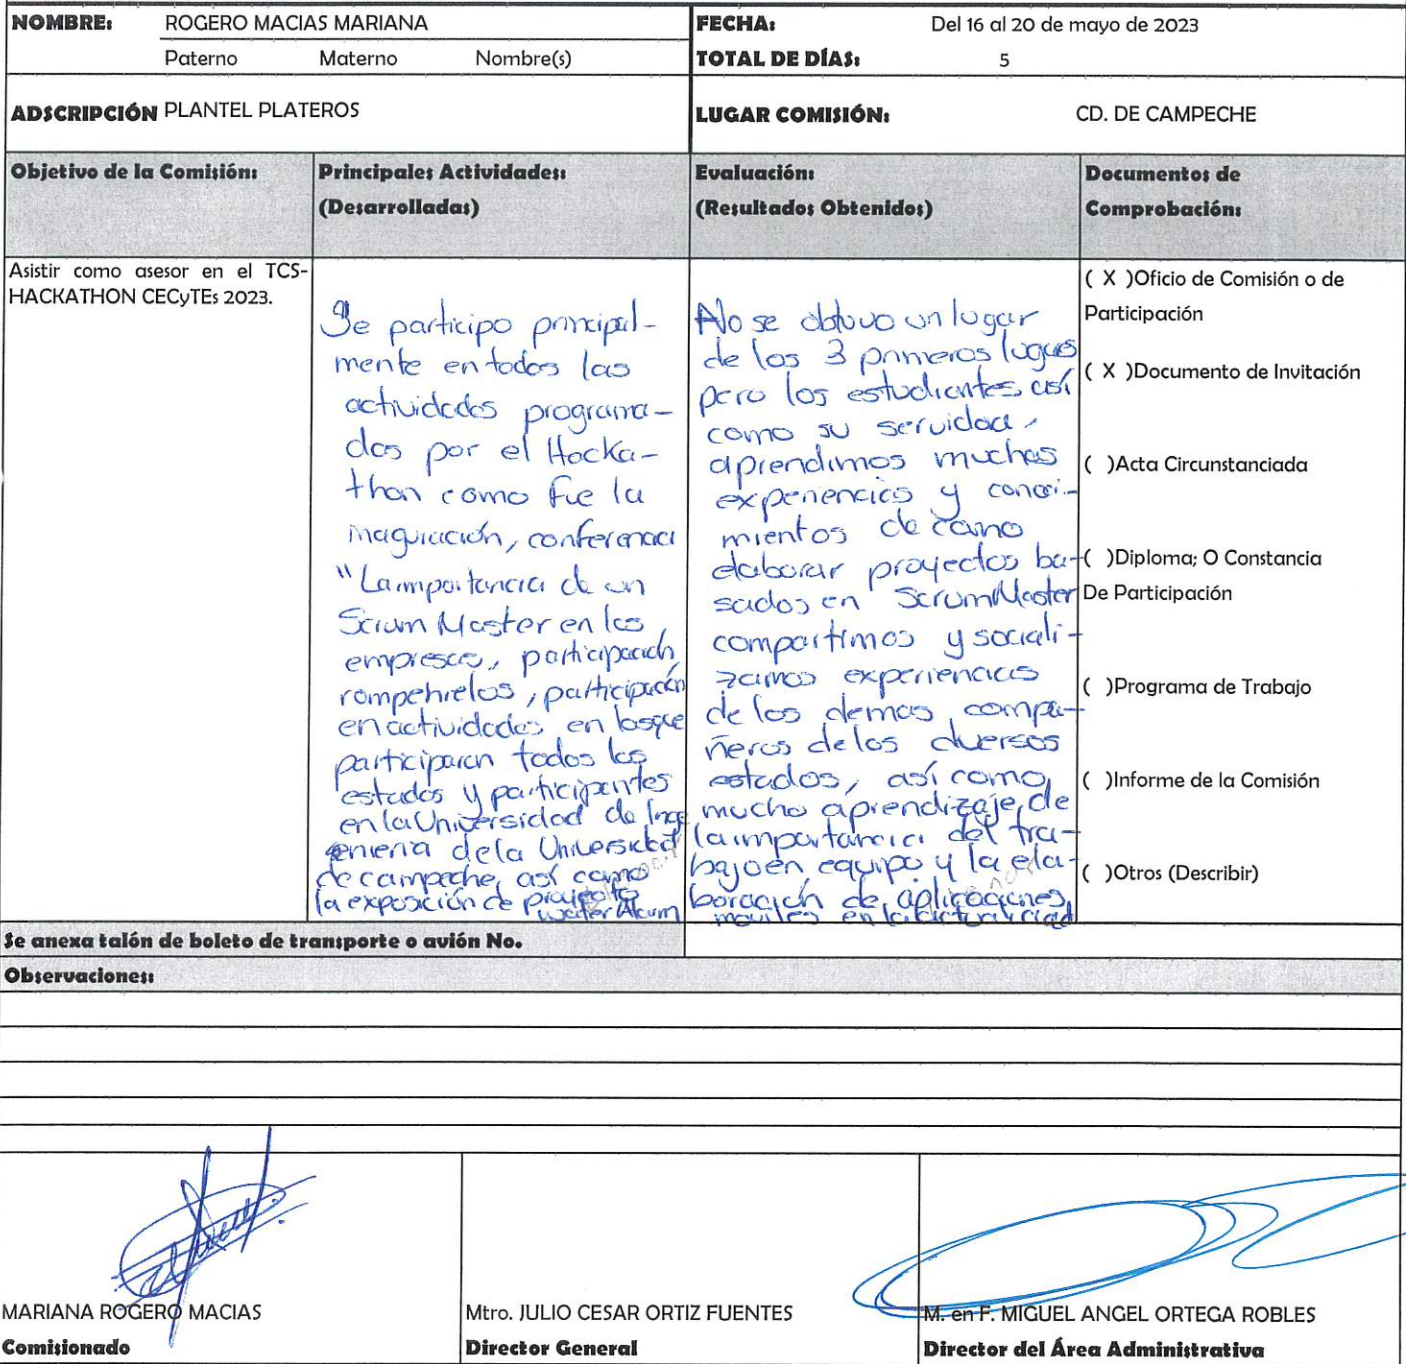 NOMBRE: ROGERO MACIAS MARIANA
Paterno Materno Nombre(s)
FECHA: Del 16 al 20 de mayo de 2023
TOTAL DE DÍAS: 5
ADSCRIPCIÓN PLANTEL PLATEROS
LUGAR COMISIÓN: CD. DE CAMPECHE
Objetivo de la Comisión:
Principales Actividades:
(Desarrolladas)
Evaluación:
(Resultados Obtenidos)
Documentos de
Comprobación:
Asistir como asesor en el TCS-
HACKATHON CECyTEs 2023.
Se participo principal-
mente en todas las
actividades programa-
das por el Hacka-
thon como fue la
inaguración, conferencia
"La importancia de un
Scrum Master en las
empresas, participación
rompehielos, participación
en actividades en las que
participaron todos los
estados y participantes
en la Universidad de Inge
enieria de la Universidad
de campeche, así como
la exposición de proyecto
water
No se obtuvo un lugar
de los 3 primeros lugares
pero los estudiantes así
como su servidora,
aprendimos muchas
experiencias y conoci-
mientos de como
elaborar proyectos ba-
sados en Scrum Master
compartimos y sociali-
zamos experiencias
de los demas compa-
ñeros de los diversos
estados, así como,
mucho aprendizaje, de
la importancia del tra-
bajo en equipo y la ela-
boración de aplicaciones
moviles en la actualidad
( X )Oficio de Comisión o de
Participación
( X )Documento de Invitación
( )Acta Circunstanciada
( )Diploma; O Constancia
De Participación
( )Programa de Trabajo
( )Informe de la Comisión
( )Otros (Describir)
Se anexa talón de boleto de transporte o avión No.
Observaciones:
MARIANA ROGERO MACIAS
Comisionado
Mtro. JULIO CESAR ORTIZ FUENTES
Director General
M. en F. MIGUEL ANGEL ORTEGA ROBLES
Director del Área Administrativa